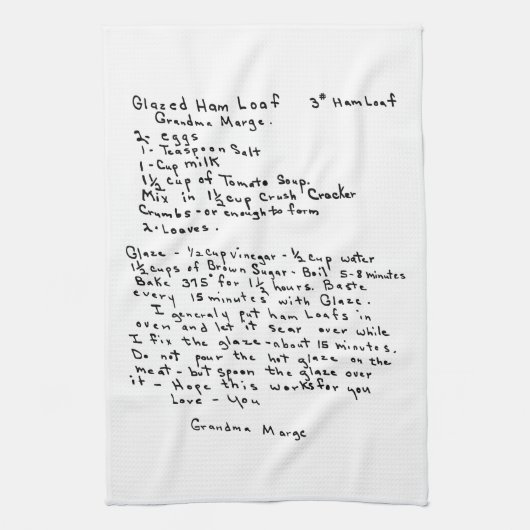 Glazed Ham Loaf 3# Ham Loaf
Grandma Marge.
2 - eggs
1 - Teaspoon Salt
1 - Cup milk
1 1/2 cup of Tomato Soup.
Mix in 1 1/2 cup Crush Cracker
Crumbs - or enough to form
2 - Loaves.
Glaze - 1/2 cup vinegar - 1/2 cup water
1 1/2 cups of Brown Sugar - Boil 5-8 minutes
Bake 375° for 1 1/2 hours. Baste
every 15 minutes with Glaze.
I generaly put ham Loafs in
oven and let it sear over while
I fix the glaze - about 15 minutes.
Do not pour the hot glaze on the
meat - but spoon the glaze over
it - Hope this works for you
Love - You
Grandma Marge